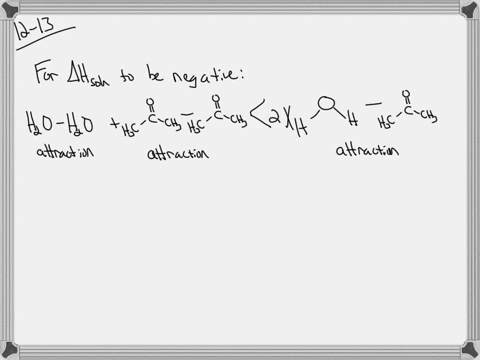 12-13
For ΔHsoln to be negative:
H₂O – H₂O + H₃C C O CH₃ – H₃C C O CH₃ < 2 X H O H – H₃C C O CH₃
attraction attraction attraction